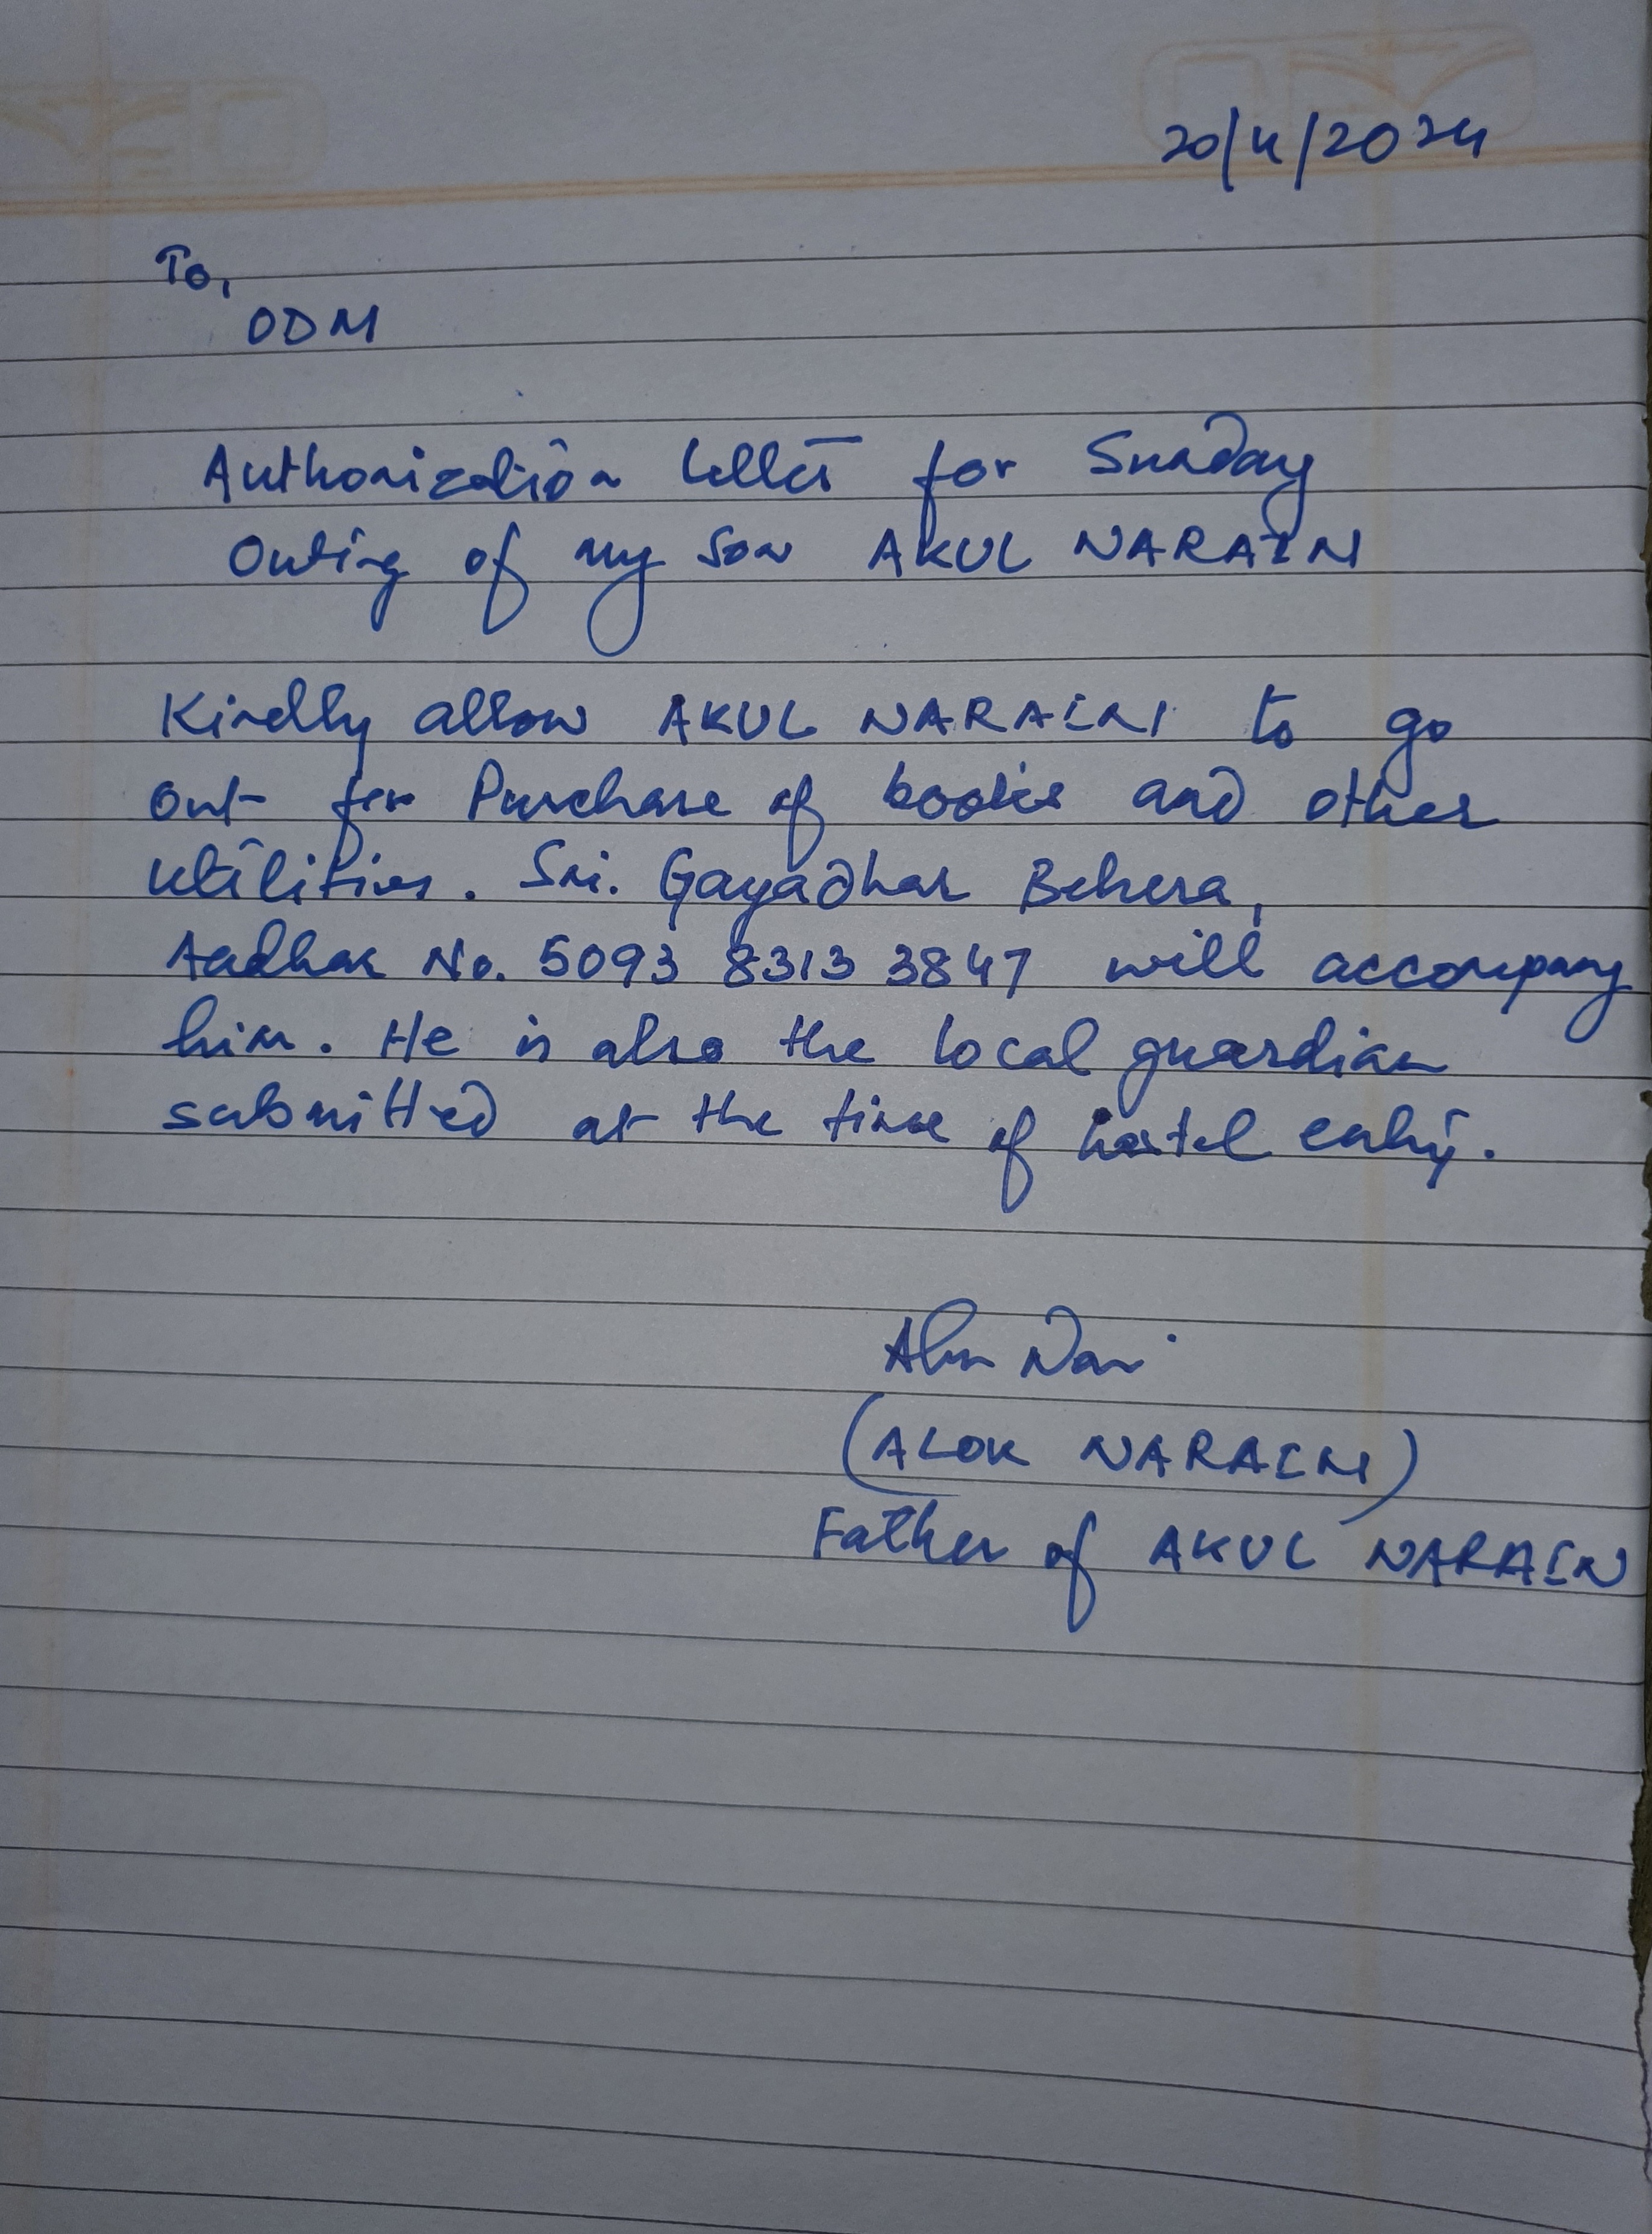 20/4/2024
To,
ODM
Authorization letter for Sunday
Outing of my son AKUL NARAIN
Kindly allow AKUL NARAIN to go
out for Purchase of books and other
utilities. Sri. Gayadhar Behera,
Aadhar No. 5093 8313 3847 will accompany
him. He is also the local guardian
submitted at the time of hostel entry.
(ALOK NARAIN)
Father of AKUL NARAIN